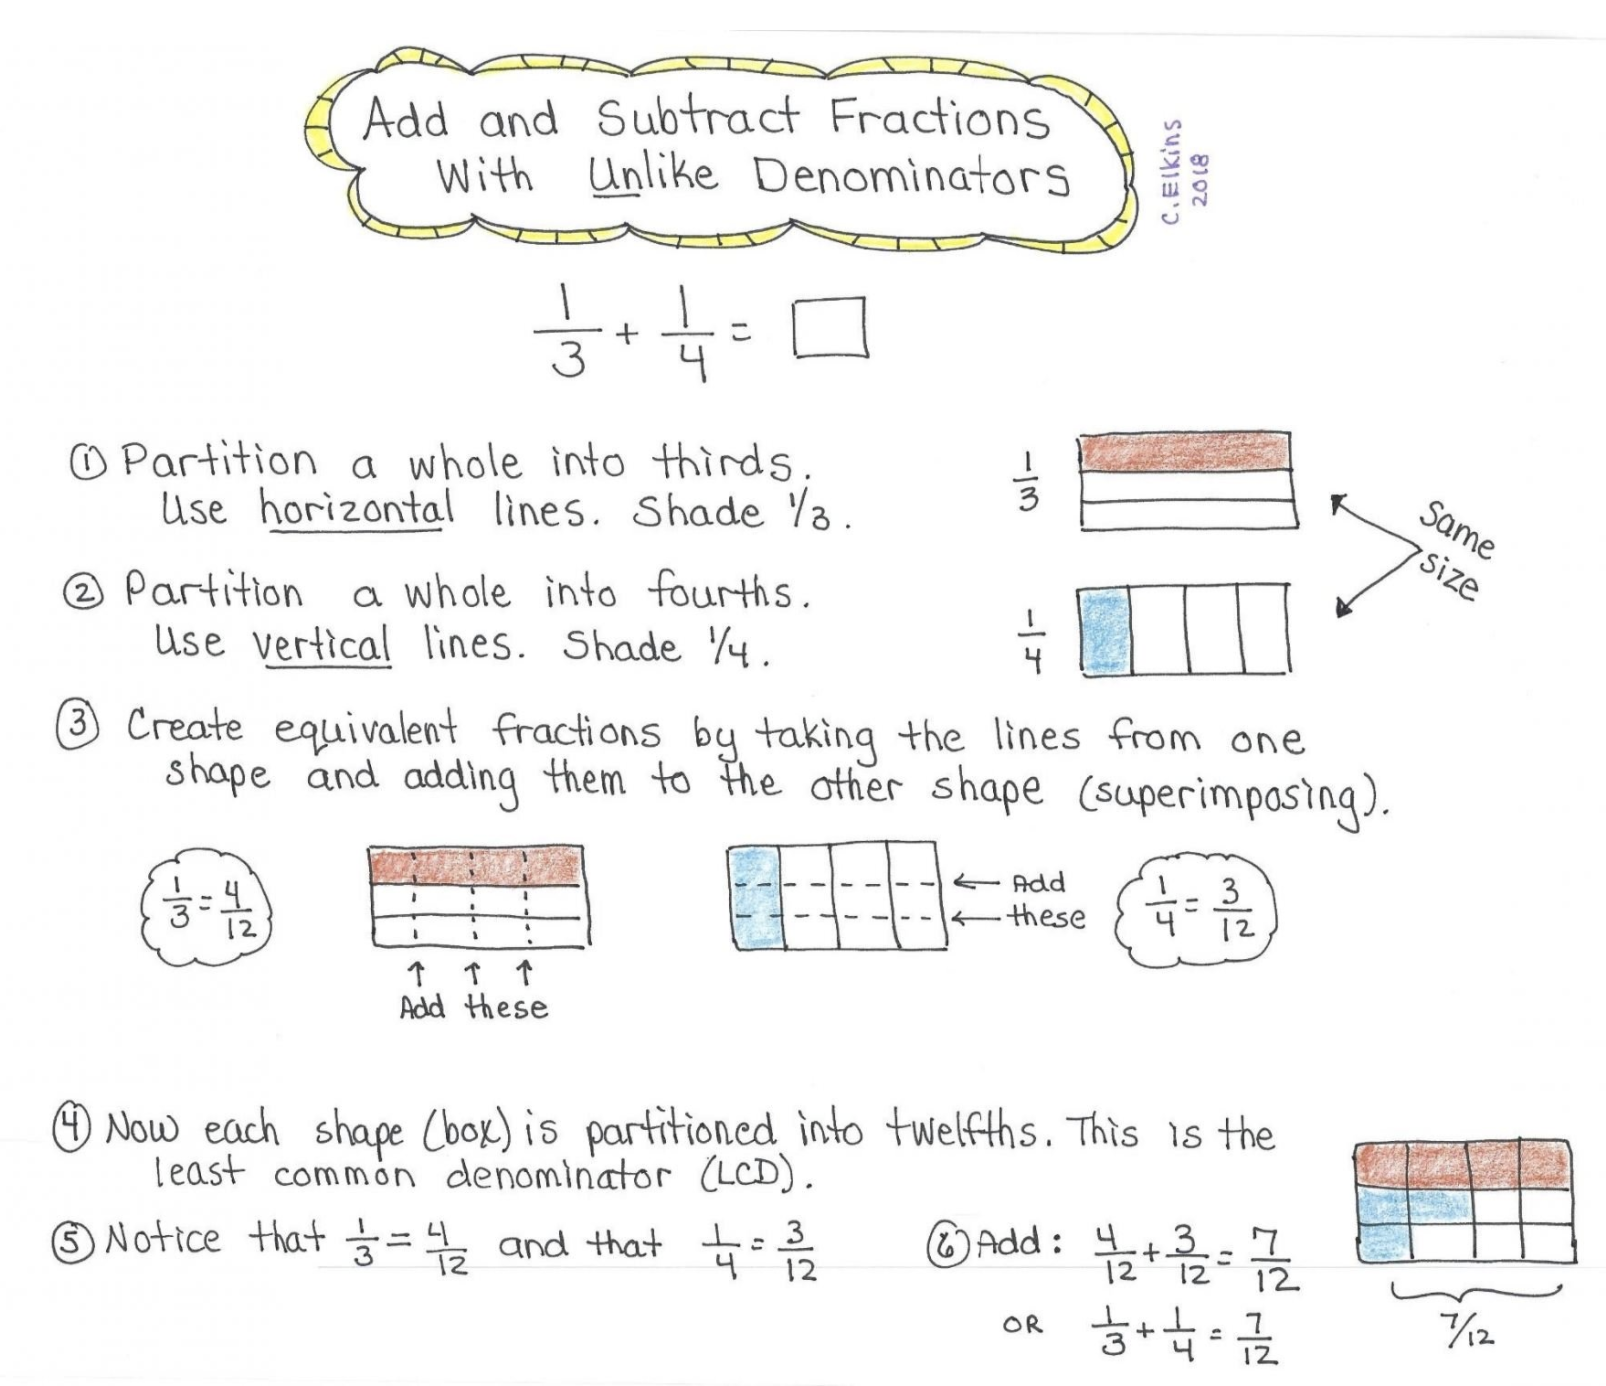 Add and Subtract Fractions
With Unlike Denominators
C. Elkins
2018
1/3 + 1/4 = □
① Partition a whole into thirds.
Use horizontal lines. Shade 1/3.
1/3
② Partition a whole into fourths.
Use vertical lines. Shade 1/4.
1/4
Same
size
③ Create equivalent fractions by taking the lines from one
shape and adding them to the other shape (superimposing).
1/3 = 4/12
↑ ↑ ↑
Add these
← Add
← these
1/4 = 3/12
④ Now each shape (box) is partitioned into twelfths. This is the
least common denominator (LCD).
⑤ Notice that 1/3 = 4/12 and that 1/4 = 3/12
⑥ Add: 4/12 + 3/12 = 7/12
OR 1/3 + 1/4 = 7/12
7/12